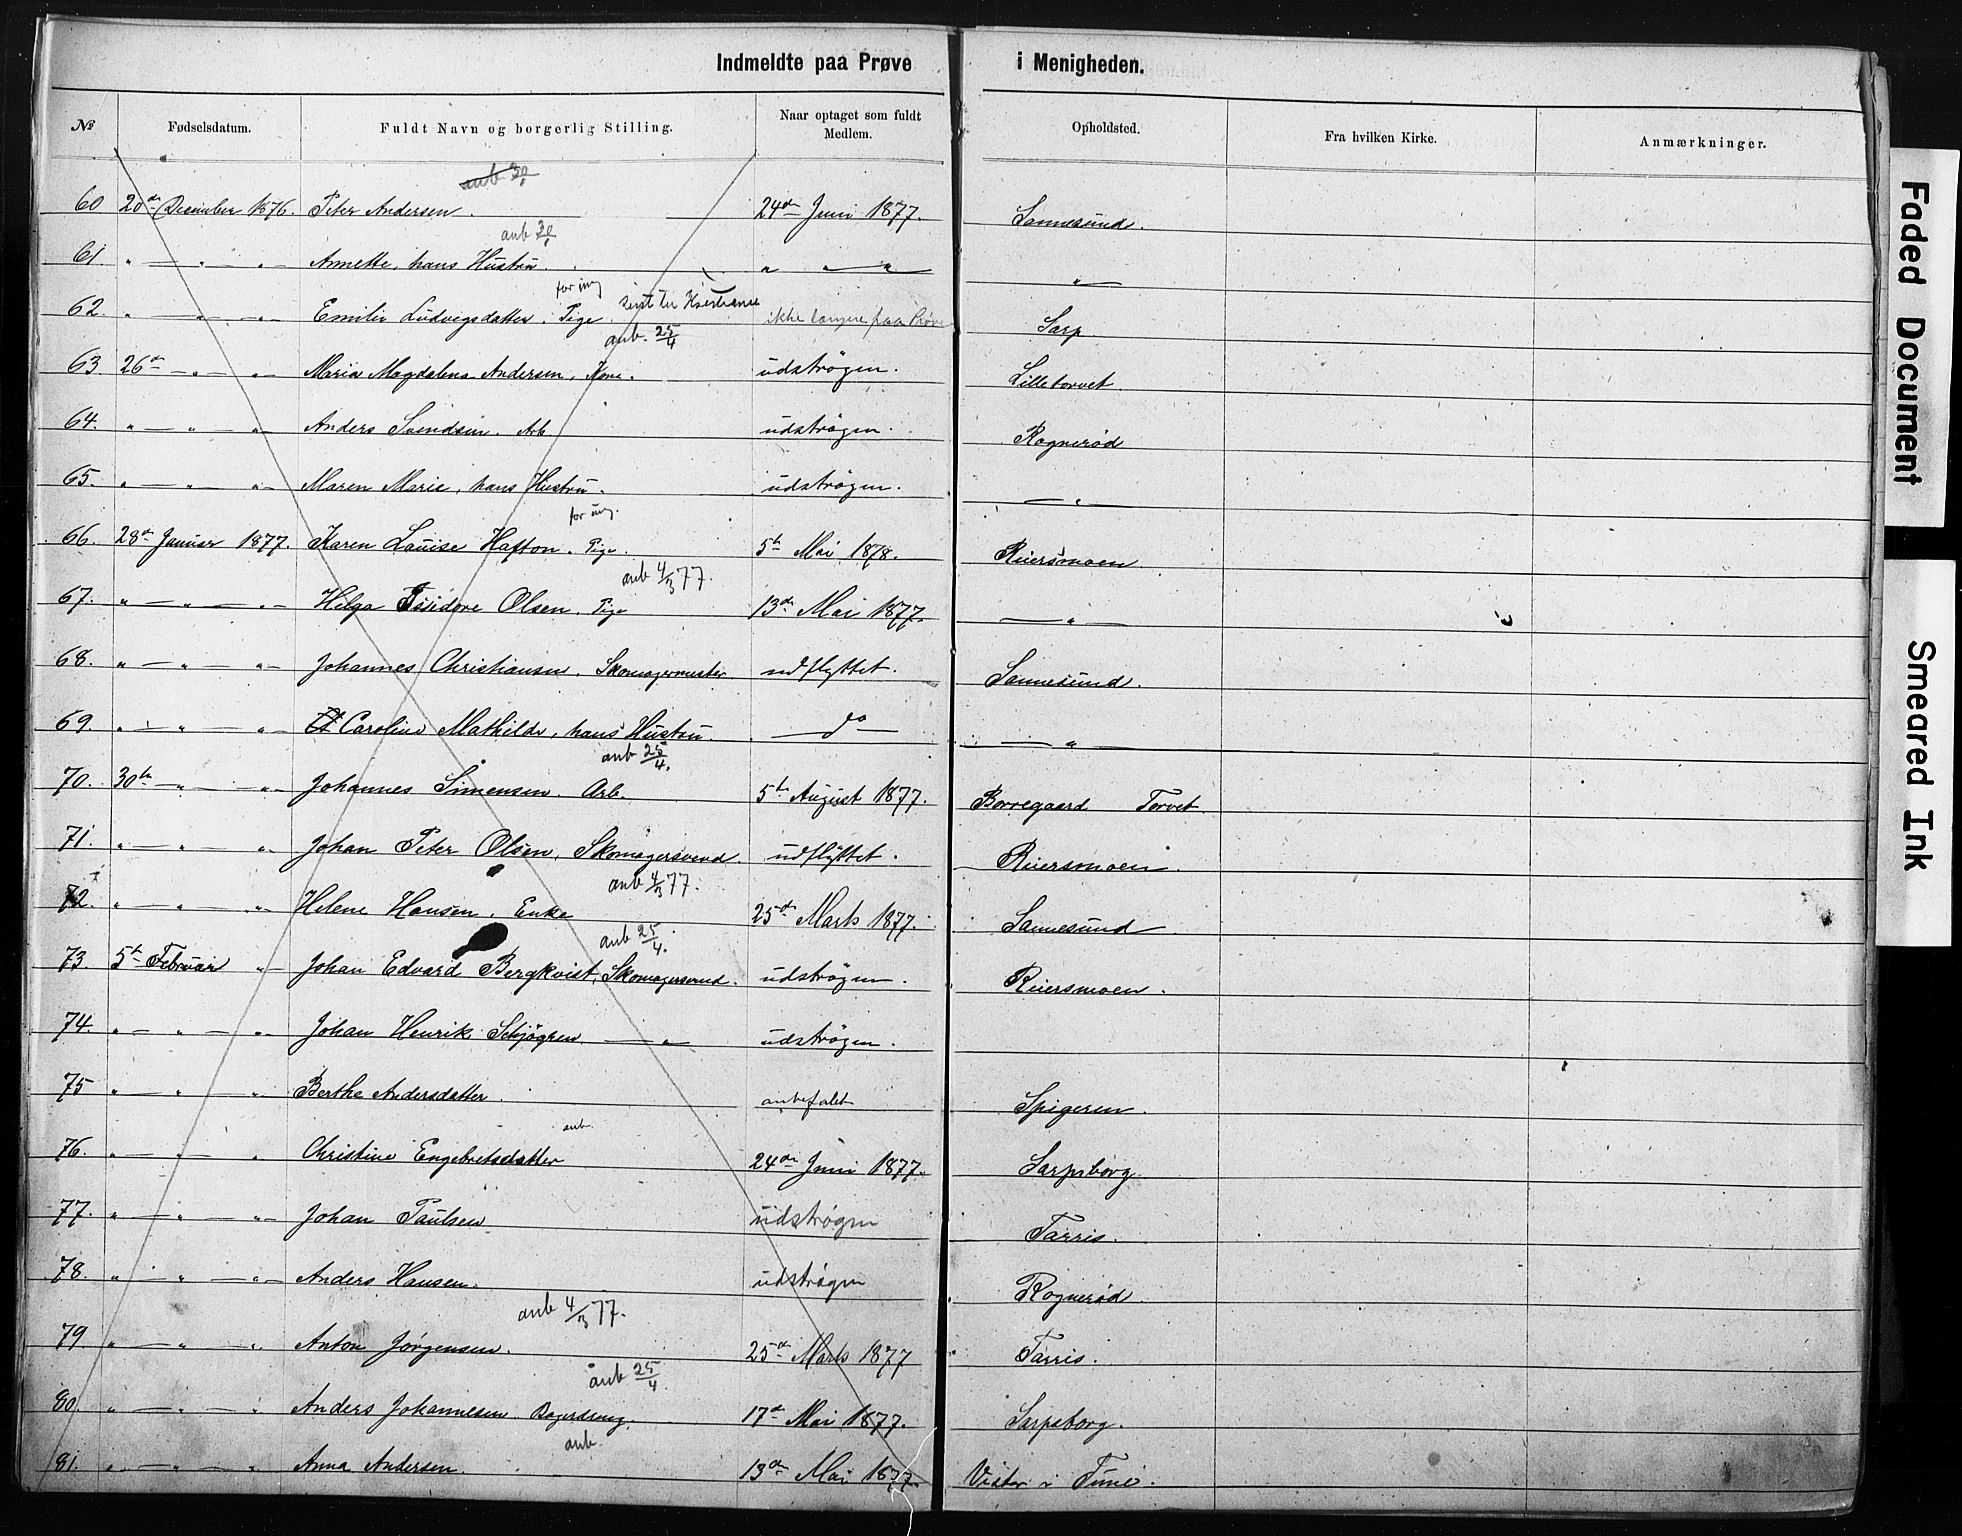 Indmeldte paa Prøve i Menigheden.
№ Fødselsdatum. Fuldt Navn og borgerlig Stilling. Naar optaget som fuldt Medlem. Opholdsted. Fra hvilken Kirke. Anmærkninger.
anb 30
60 20de December 1876. Peter Andersen. 24de Juni 1877. Sannesund.
anb 30
61. " — " — " — Annette, hans Hustru. " " — " — "
for ung sent til Kristiania
62. " — " — " — Emilie Ludvigsdatter, Pige. ikke længere paa Prøve Sarp
anb. 25/4
63. 26de — " — " — Maria Magdalena Andersen, Kone. udstrøgen. Lilletorvet.
64. " — " — " — Anders Svendsen. Arb udstrøgen. Rognerød
65. " — " — " — Maren Marie, hans Hustru. udstrøgen. — " —
for ung.
66. 28de Januar 1877. Karen Lauise Hafton. Pige. 5te Mai 1878. Reiersmoen
anb 4/3 77.
67. " — " — " — Helga Isidore Olsen. Pige 13de Mai 1877. — " —
68. " — " — " — Johannes Christiansen. Skomagermester udflyttet. Sannesund.
69. " — " — " — Caroline Mathilde, hans Hustru. — do — — " —
anb 25/4.
70. 30te — " — " — Johannes Simensen. Arb. 5te August 1877. Borregaard Torvet
71. " — " — " — Johan Peter Olsen, Skomagersvend. udflyttet. Reiersmoen.
anb 4/3 77.
72. " — " — " — Helene Hansen. Enke 25de Marts 1877. Sannesund
anb 25/4.
73. 5te Februar " — Johan Edvard Bergkvist, Skomagersvend. udstrøgen. Reiersmoen.
74. " — " — " — Johan Henrik Schjøgren. — " — udstrøgen.
75 " — " — " — Berthe Andersdatter. anbefalet Spigeren.
anb.
76. " — " — " Christine Engebretsdatter 24de Juni 1877. Sarpsborg
77. " — " — " — Johan Paulsen udstrøgen Tarris.
78. " — " — " — Anders Hansen. udstrøgen Rognerød.
anb 4/3 77.
79 " — " — " — Anton Jørgensen. 25de Marts 1877 Tarris.
anb 25/4.
80. " — " — " Anders Johannesen. Bagerdreng. 17de Mai 1877. Sarpsborg.
anb.
81. " — " — " — Anna Andersen. 13de Mai 1877. i Tune.
Faded Document
Smeared Ink